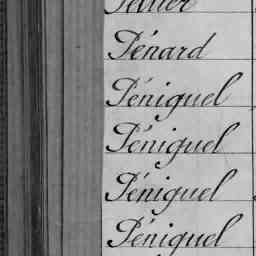 Pénard
Péniguel
Péniguel
Péniguel
Péniguel